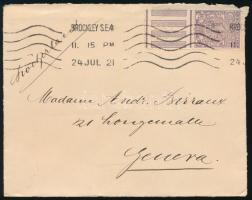 BROCKLEY S.E.4
11. 15 PM
24 JUL 21
24
Madame André Birraux
21 Longemalle
Geneva.